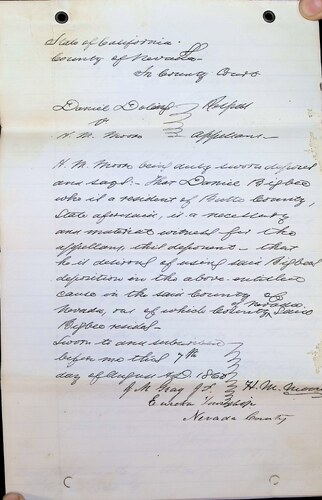 State of California
County of Nevada
In County Court
Daniel Doling Respdt
v
H. M. Moore appellant
H. M. Moore being duly sworn deposes
and says:- That Daniel Bigbee
who is a resident of Butte County,
State aforesaid, is a necessary
and material witness for the
appellant, this deponent - that
he is desirous of using said Bigbees
deposition in the above entitled
cause in the said County of
Nevada, out of which County, said
Bigbee resides-
Sworn to and subscribed
before me this 7th
day of August AD
J. M. Gray J. P. H. M. Moore
Eureka Township
Nevada County